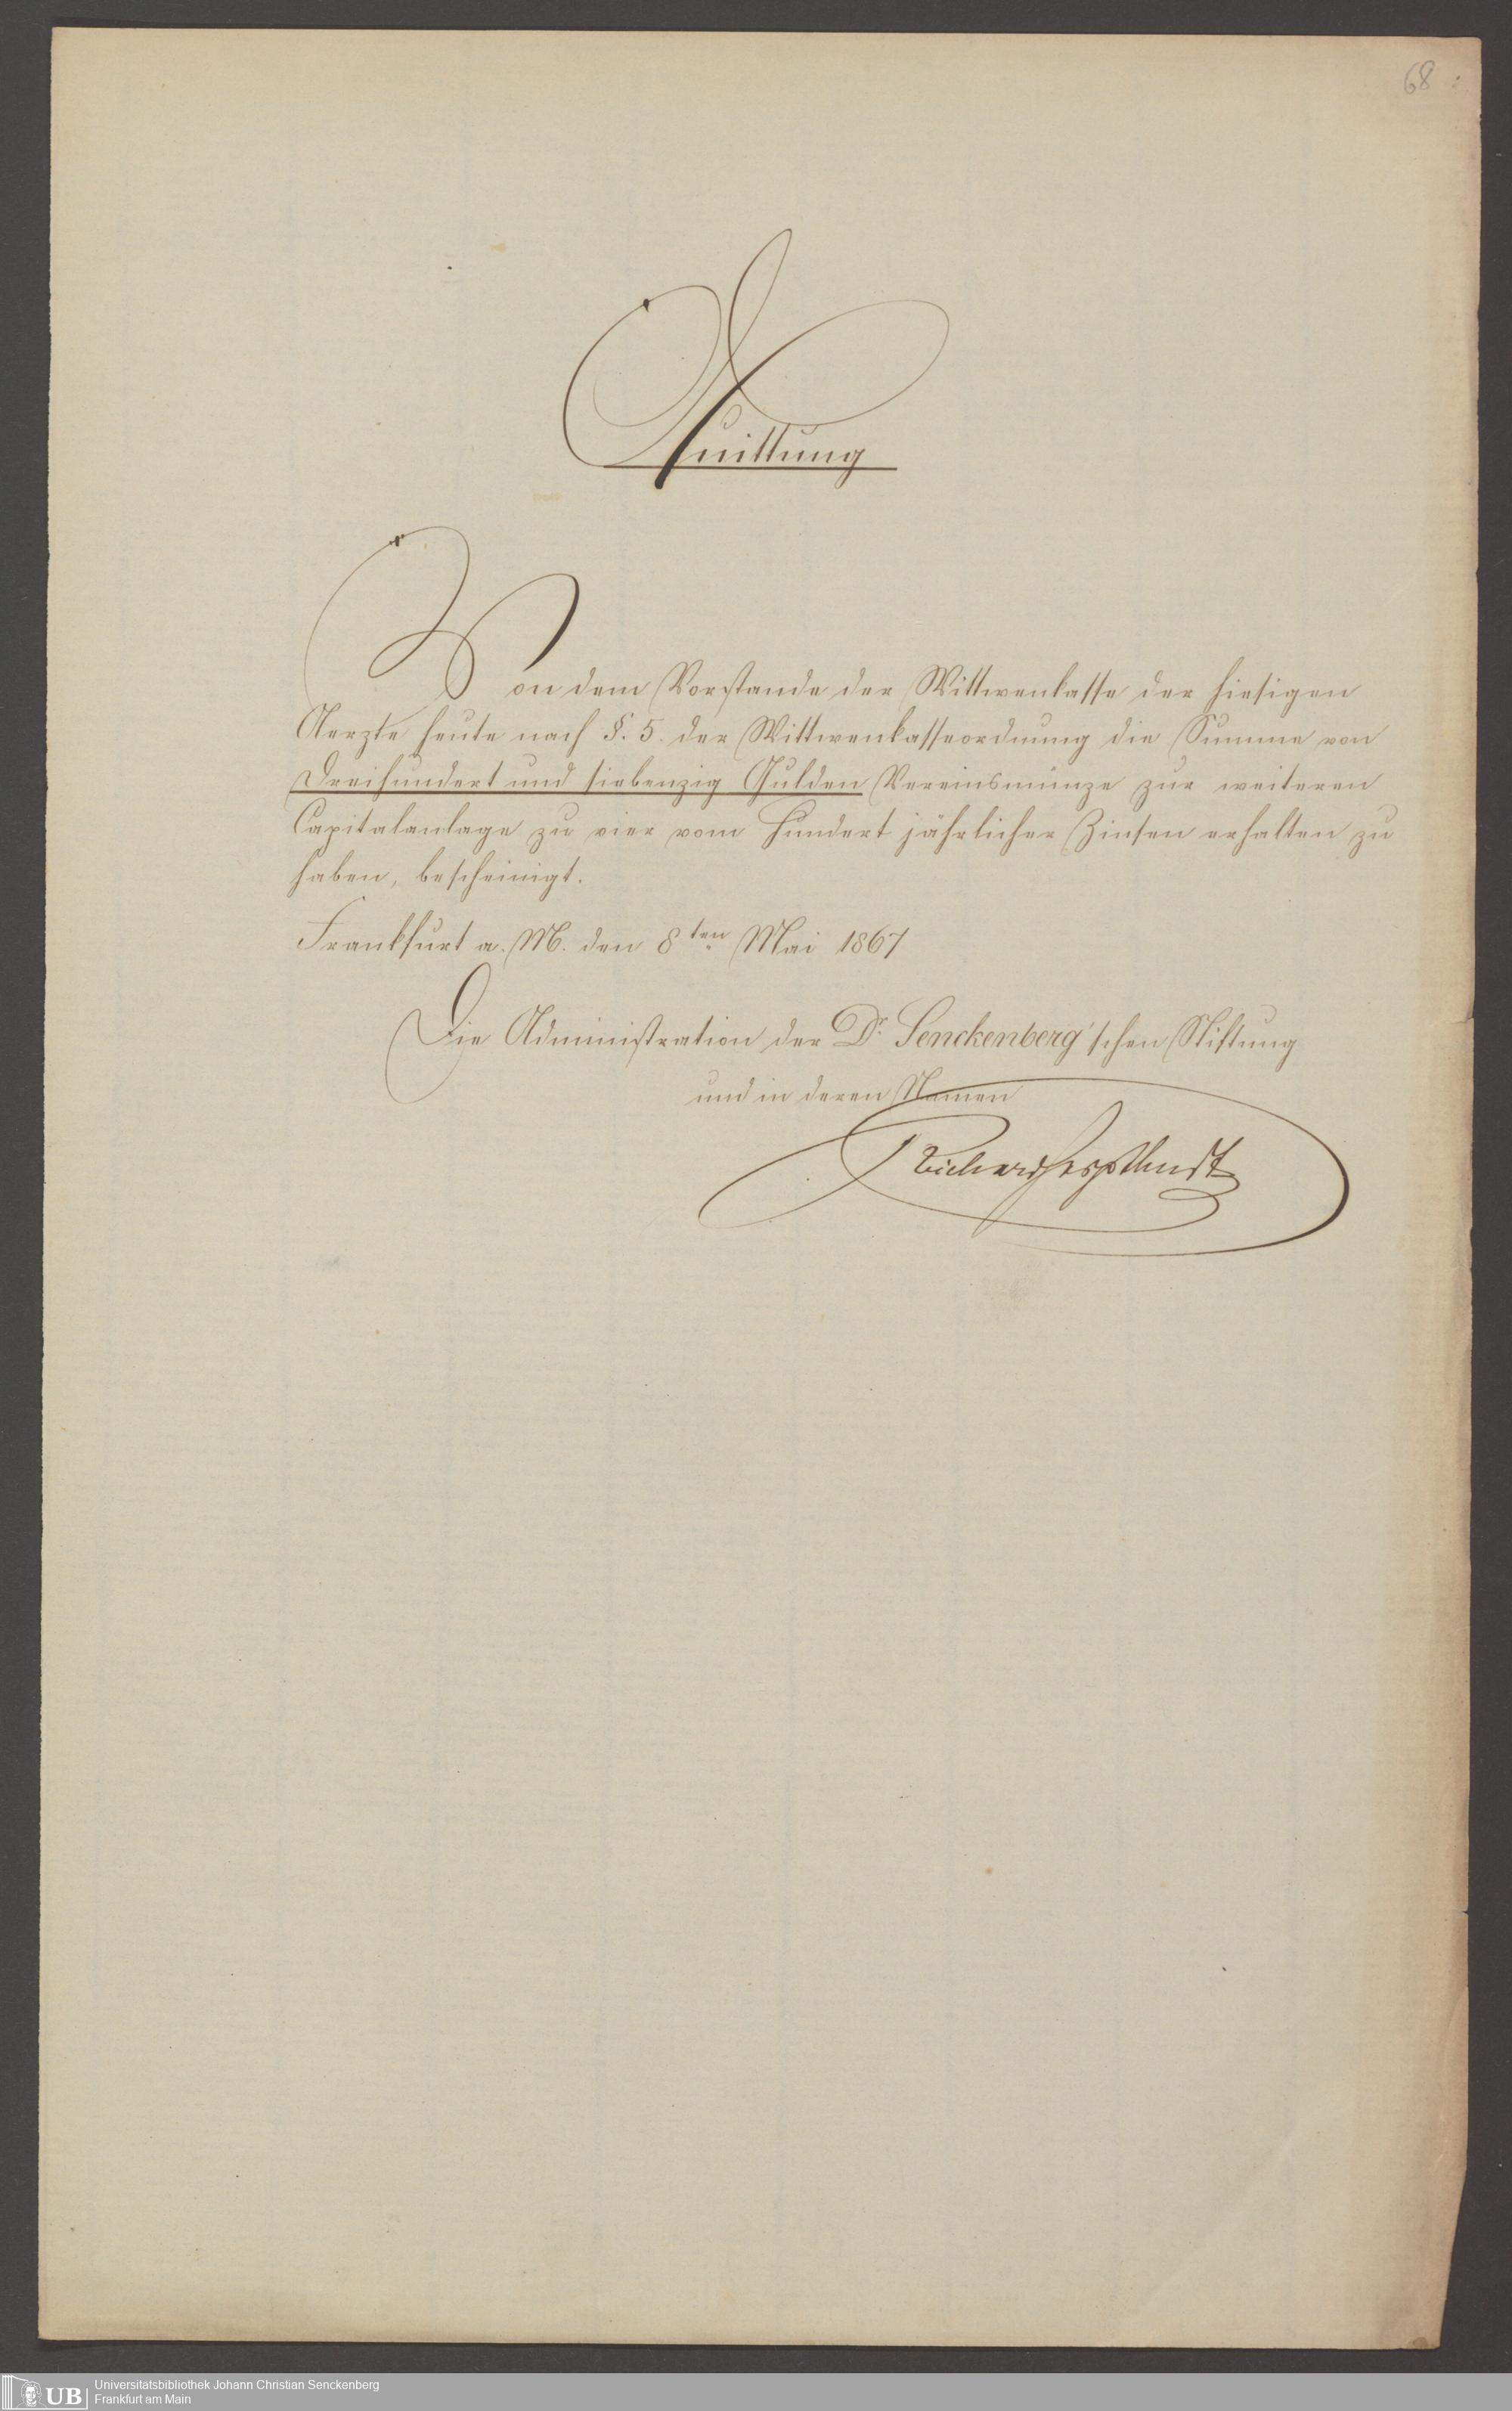 68
Quittung
Von dem Vorstande der Wittwenkasse der hiesigen
Aerzte heute nach §. 5. der Wittwenkasseordnung die Summe von
Dreihundert und siebenzig Gulden Vereinsmünze zur weiteren
Capitalanlage zu vier vom Hundert jährlicher Zinsen erhalten zu
haben, bescheinigt.
Frankfurt a. M. den 8ten Mai 1867
Die Administration der Dr. Senckenberg'schen Stiftung
und in deren Namen
UB
Universitätsbibliothek Johann Christian Senckenberg
Frankfurt am Main